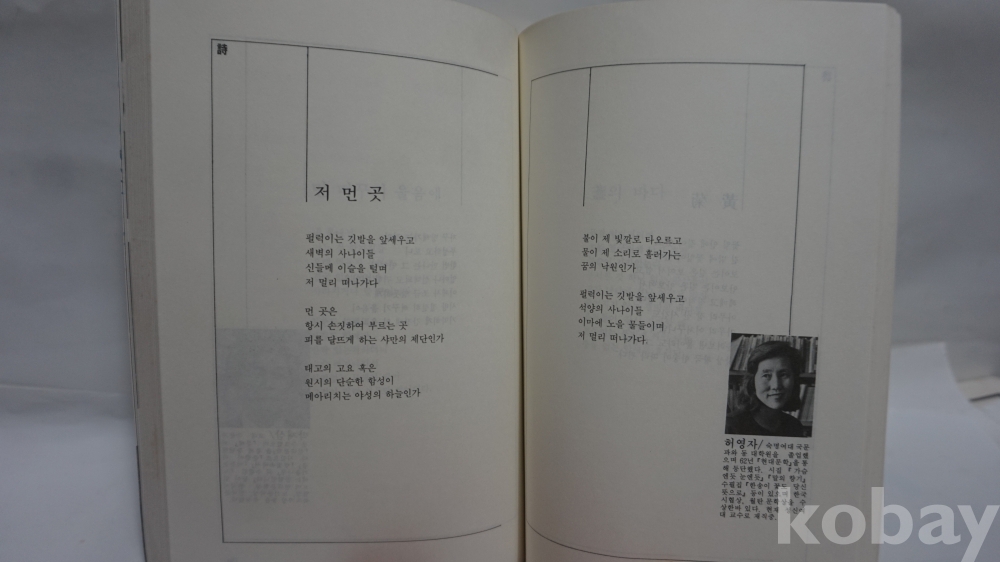 詩
저 먼 곳
펄럭이는 깃발을 앞세우고
새벽의 사나이들
신들메 이슬을 털며
저 멀리 떠나가다
먼 곳은
항시 손짓하여 푸르는 곳
피를 달뜨게 하는 샤만의 제단인가
태고의 고요 혹은
원시의 단순한 함성이
메아리치는 야성의 하늘인가
불이 제 빛깔로 타오르고
물이 제 소리로 흘러가는
꿈의 낙원인가
펄럭이는 깃발을 앞세우고
석양의 사나이들
이마에 노을 물들이며
저 멀리 떠나가다.
허영자/ 숙명여대 국문
과와 동 대학원을 졸업했
으며 62년 『현대문학』을 통
해 등단했다. 시집 『가슴
엔듯 눈엔듯』 『말의 향기』
수필집 『한송이 꽃도 당신
뜻으로』 등이 있으며 한국
시협상, 월탄 문학상을 수
상한바 있다. 현재
대 교수로 재직중.
kobay